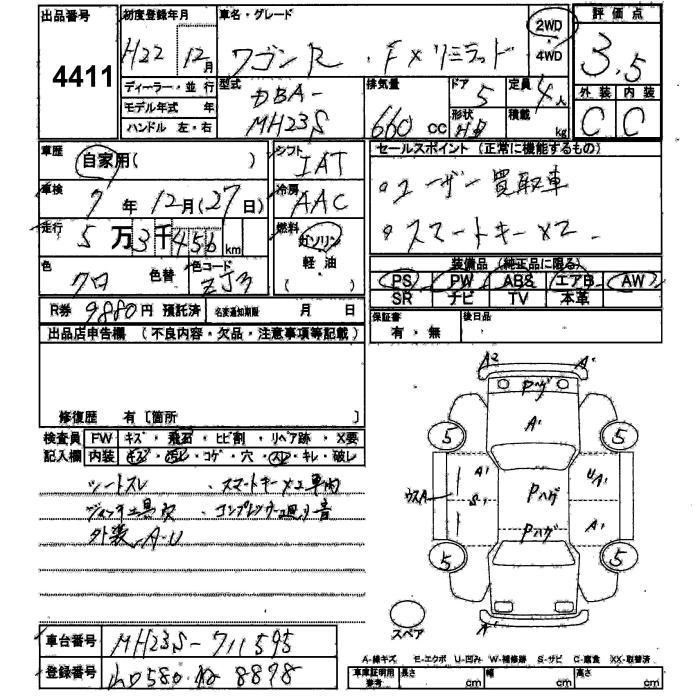 出品番号
4411
初度登録年月
H22 年 12月
車名・グレード
ワゴンR . FXリミテッド
2WD
4WD
評価点
3.5
外装 内装
C C
ディーラー・並行
モデル年式 年
ハンドル 左・右
型式
DBA-
MH23S
排気量
660 cc
ドア
5
形状
HB
定員
4人
積載
kg
車歴
自家用( )
車検
7年 12月(27日)
走行
5万3千456km
色
クロ
色替
色コード
ZJ3
シフト
IAT
冷房
AAC
燃料
ガソリン
軽油
セールスポイント (正常に機能するもの)
。ユーザー買取車
。スマートキー×2
装備品 (純正品に限る)
PS PW ABS エアB AW
SR ナビ TV 本革
R券 9880円 預託済
名変通知期限 月 日
保証書
有・無
後日品
出品店申告欄 (不良内容・欠品・注意事項等記載)
修復歴 有〔箇所 〕
検査員
記入欄
FW キズ・飛石・ヒビ割・リペア跡・X要
内装 キズ・汚レ・コゲ・穴・スレ・キレ・破レ
シートスレ ・スマートキー×2車内
ジャッキ工具欠 ・コンプレッサー廻り音
外装 A-U
A2 A1
Pハゲ
A1
5 5
A1 UA1
ウスA S1 Pハゲ
A1
Pハゲ
5 5
A1
スペア
車台番号 MH23S-711595
登録番号 8898
A-線キズ E-エクボ U-凹み W-補修跡 S-サビ C-腐食 XX-取替済
車庫証明用
参考
長さ cm 幅 cm 高さ cm